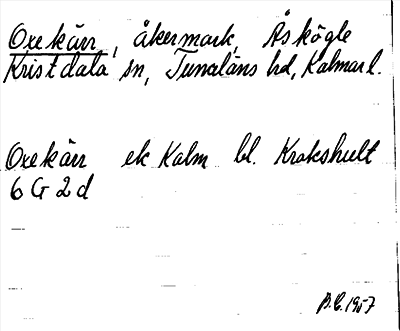 Oxekärr, åkermark, Åskögle
Kristdala sn, Tunaläns hd, Kalmar l.
Oxekärr ek Kalm bl. Krokshult
6 G 2 d
B.E. 1957